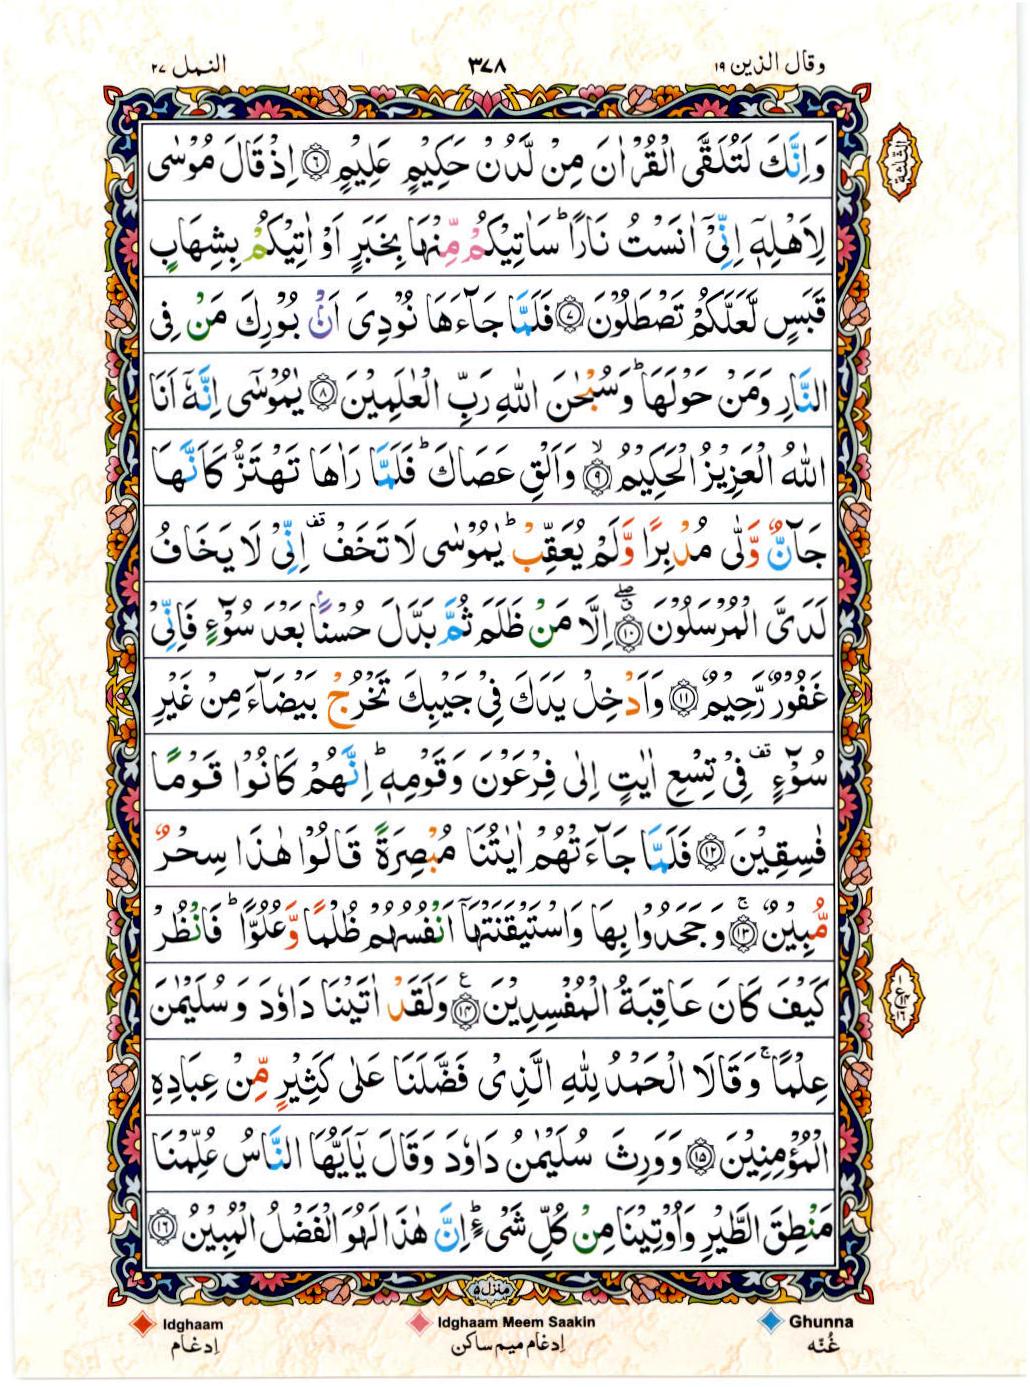 وقال الذين ١٩
٣٧٨
النمل ٢٧
وَاِنَّكَ لَتُلَقَّى الْقُرْاٰنَ مِنْ لَّدُنْ حَكِيْمٍ عَلِيْمٍ ۝٦ اِذْ قَالَ مُوْسٰى
لِاَهْلِهٖٓ اِنِّىْٓ اٰنَسْتُ نَارًا ؕ سَاٰتِيْكُمْ مِّنْهَا بِخَبَرٍ اَوْ اٰتِيْكُمْ بِشِهَابٍ
قَبَسٍ لَّعَلَّكُمْ تَصْطَلُوْنَ ۝٧ فَلَمَّا جَآءَهَا نُوْدِىَ اَنْۢ بُوْرِكَ مَنْ فِى
النَّارِ وَمَنْ حَوْلَهَا ؕ وَسُبْحٰنَ اللّٰهِ رَبِّ الْعٰلَمِيْنَ ۝٨ يٰمُوْسٰٓى اِنَّهٗٓ اَنَا
اللّٰهُ الْعَزِيْزُ الْحَكِيْمُ ۙ۝٩ وَاَلْقِ عَصَاكَ ؕ فَلَمَّا رَاٰهَا تَهْتَزُّ كَاَنَّهَا
جَآنٌّ وَّلّٰى مُدْبِرًا وَّلَمْ يُعَقِّبْ ؕ يٰمُوْسٰى لَا تَخَفْ قف اِنِّىْ لَا يَخَافُ
لَدَىَّ الْمُرْسَلُوْنَ ۖۗ۝١٠ اِلَّا مَنْ ظَلَمَ ثُمَّ بَدَّلَ حُسْنًۢا بَعْدَ سُوْٓءٍ فَاِنِّىْ
غَفُوْرٌ رَّحِيْمٌ ۝١١ وَاَدْخِلْ يَدَكَ فِىْ جَيْبِكَ تَخْرُجْ بَيْضَآءَ مِنْ غَيْرِ
سُوْٓءٍ قف فِىْ تِسْعِ اٰيٰتٍ اِلٰى فِرْعَوْنَ وَقَوْمِهٖ ؕ اِنَّهُمْ كَانُوْا قَوْمًا
فٰسِقِيْنَ ۝١٢ فَلَمَّا جَآءَتْهُمْ اٰيٰتُنَا مُبْصِرَةً قَالُوْا هٰذَا سِحْرٌ
مُّبِيْنٌ ۚ۝١٣ وَجَحَدُوْا بِهَا وَاسْتَيْقَنَتْهَآ اَنْفُسُهُمْ ظُلْمًا وَّعُلُوًّا ؕ فَانْظُرْ
كَيْفَ كَانَ عَاقِبَةُ الْمُفْسِدِيْنَ ۝١٤ ع وَلَقَدْ اٰتَيْنَا دَاوٗدَ وَسُلَيْمٰنَ
عِلْمًا ۚ وَقَالَا الْحَمْدُ لِلّٰهِ الَّذِىْ فَضَّلَنَا عَلٰى كَثِيْرٍ مِّنْ عِبَادِهِ
الْمُؤْمِنِيْنَ ۝١٥ وَوَرِثَ سُلَيْمٰنُ دَاوٗدَ وَقَالَ يٰٓاَيُّهَا النَّاسُ عُلِّمْنَا
مَنْطِقَ الطَّيْرِ وَاُوْتِيْنَا مِنْ كُلِّ شَىْءٍ ؕ اِنَّ هٰذَا لَهُوَ الْفَضْلُ الْمُبِيْنُ ۝١٦
منزل ٥
Ghunna
غُنّه
Idghaam Meem Saakin
إدغام ميم ساكن
Idghaam
إدغام